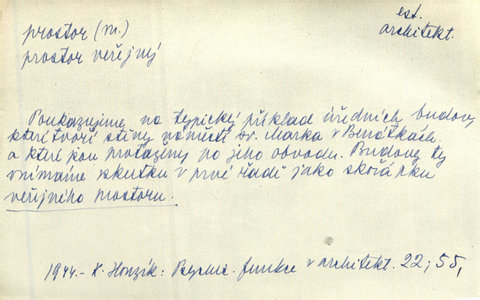 prostor (m.)
est.
architekt.
prostor veřejný
Poukazujeme na typický příklad úředních budov,
které tvoří stěny náměstí sv. Marka v Benátkách.
a které jsou protaženy po jeho obvodu. Budovy ty
vnímáme skutku v prvé řadě jako skořápku
veřejného prostoru.
1944.- K. Honzík: Psychic. funkce v architekt. 22; 55,